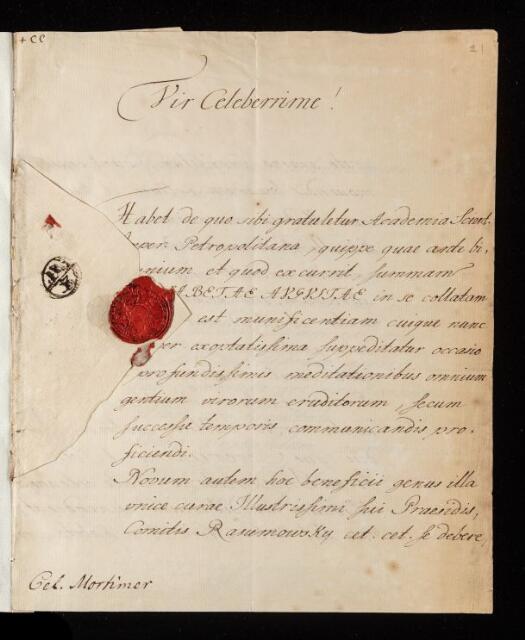 + CC
21
Vir Celeberrime!
Habet de quo sibi gratuletur Academia Scient.
Imper. Petropolitana, quippe quae ante bi-
ennium et quod excurrit, summam
BETAE AVGVSTAE in se collatam
est munificentiam cuique nunc
per exoptatissima suppeditatur occasio
profundissimis meditationibus omnium
gentium virorum eruditorum, secum
successu temporis communicandis pro-
ficiendi.
Novum autem hoc beneficii genus illa
unice curae Illustrissimi sui Praesidis,
Comitis Rasumowsky cet. cet. se debere
Cel. Mortimer